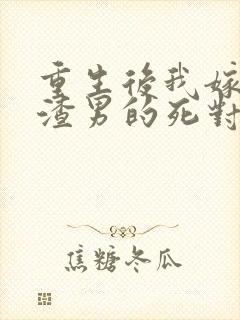 重生後我嫁
渣男的死對
焦糖冬瓜